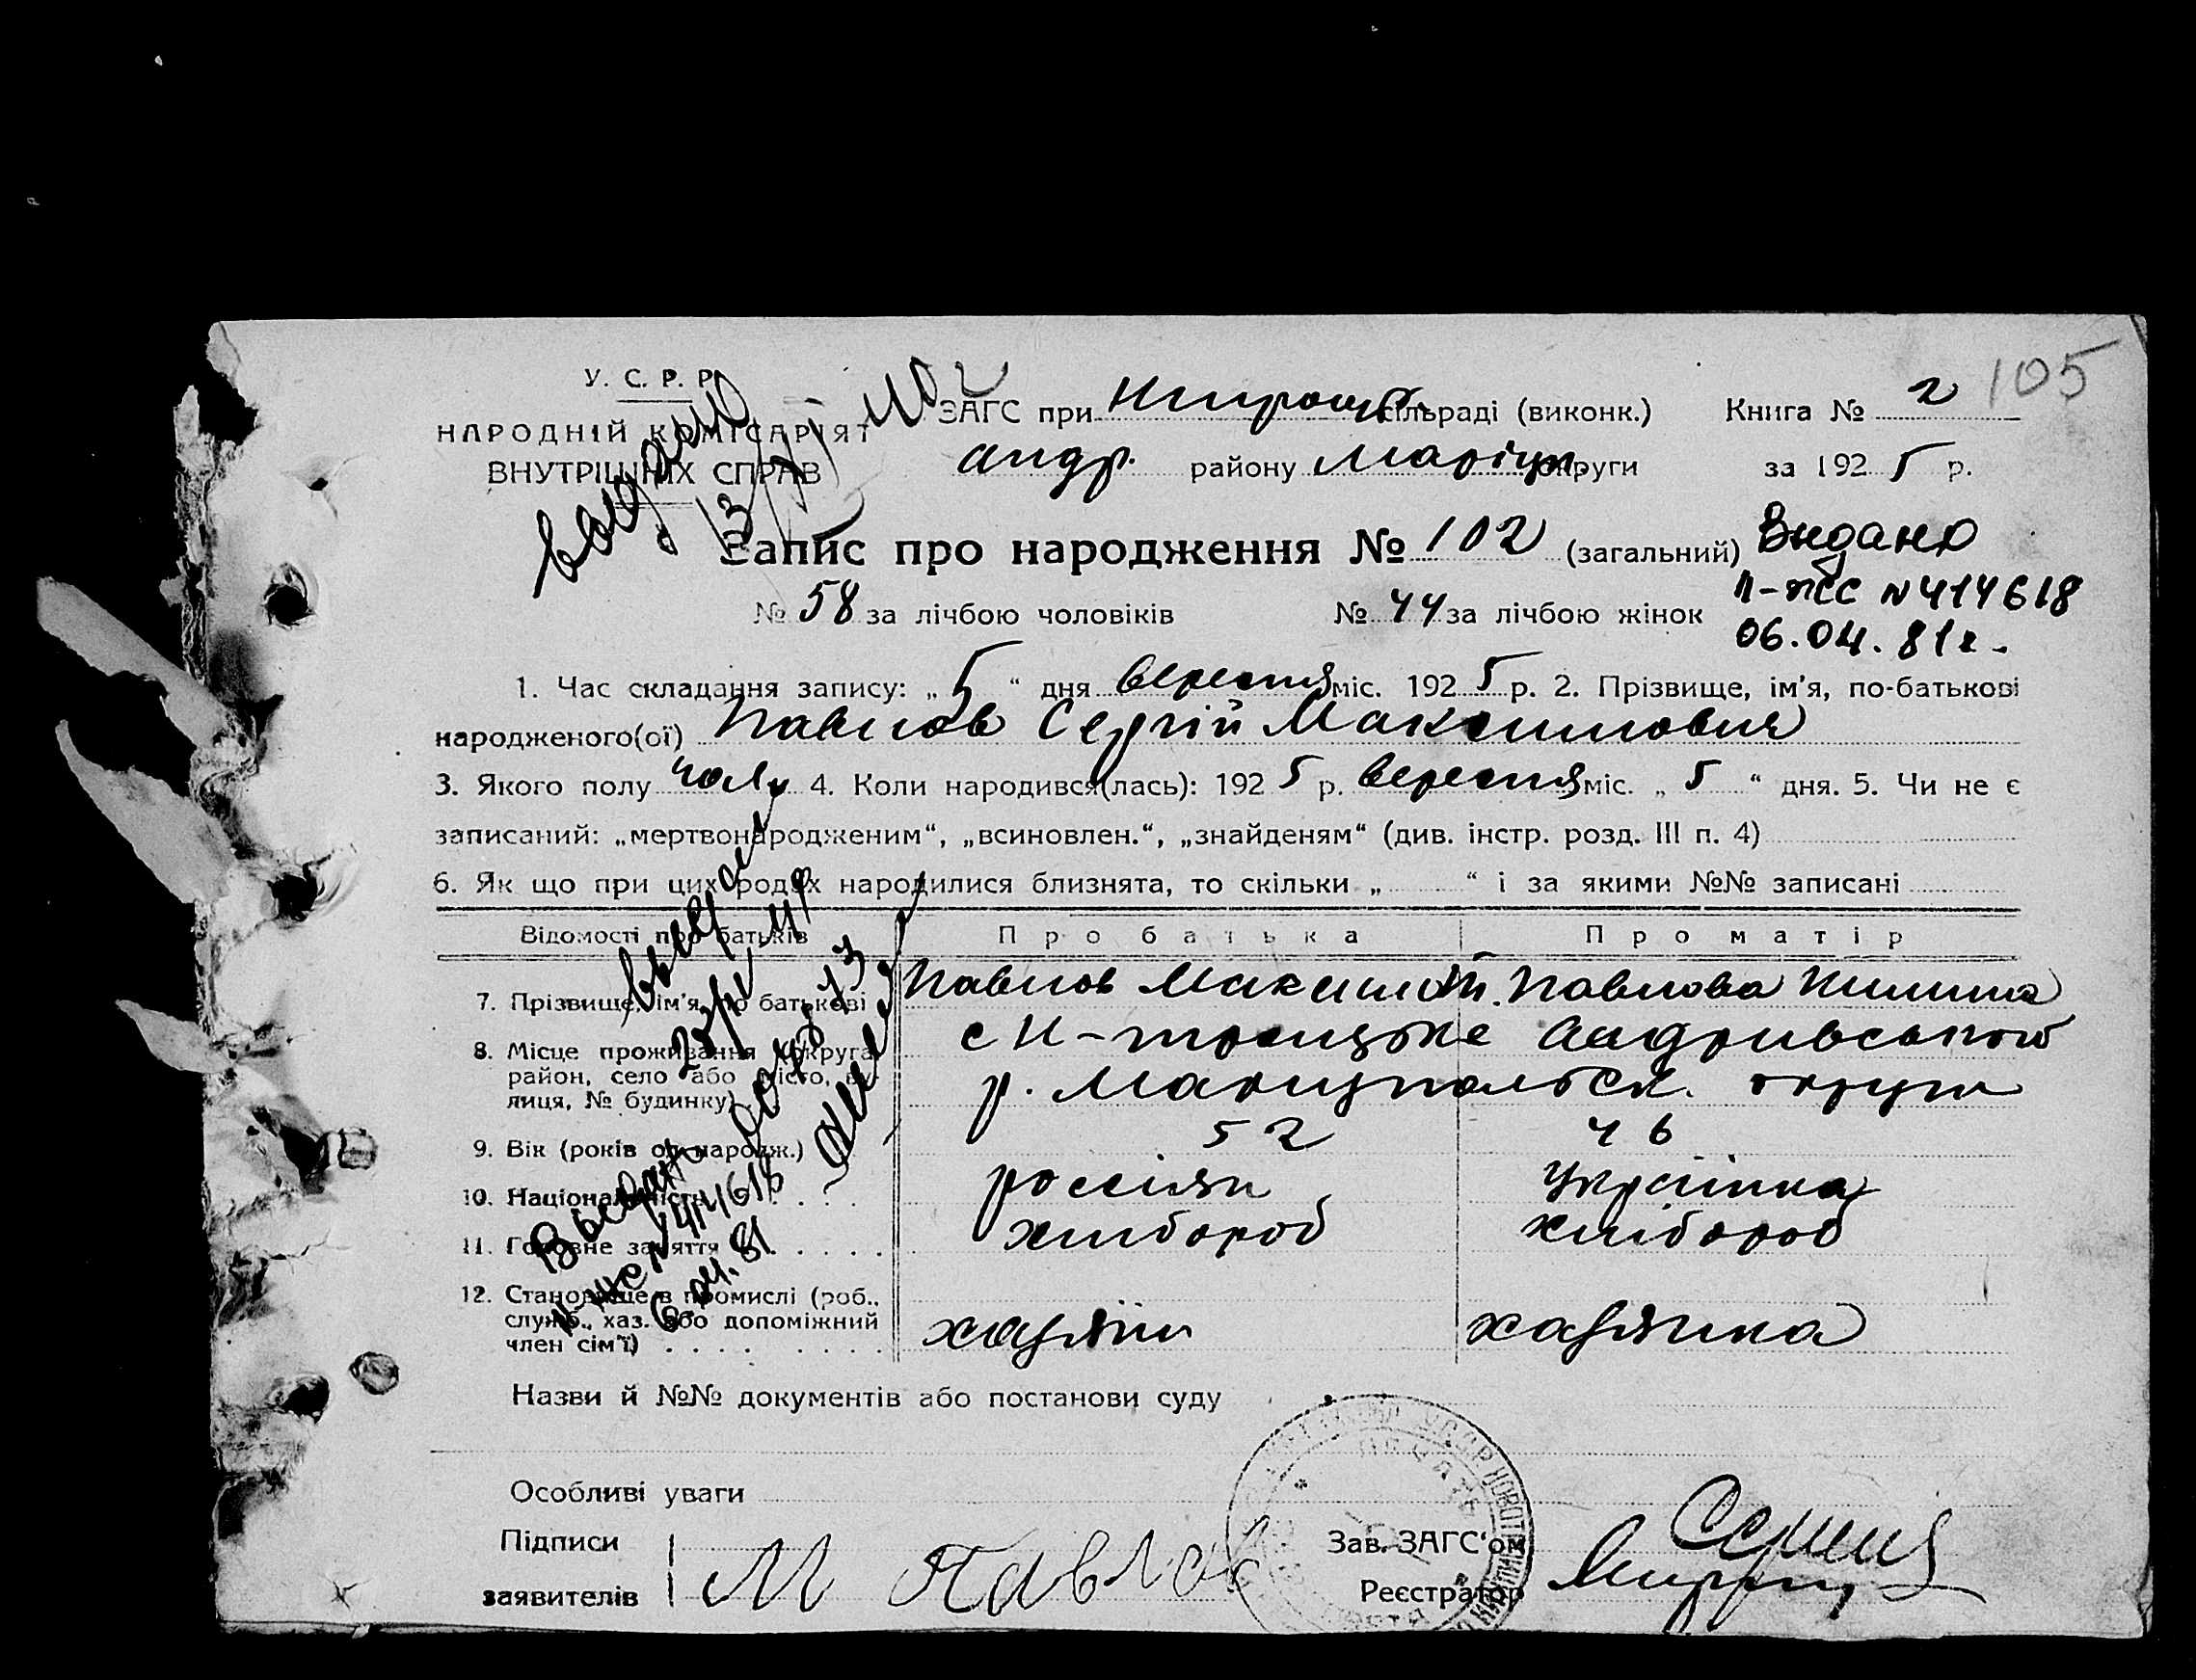 105
У. С. Р. Р.
НАРОДНІЙ КОМІСАРІЯТ
ВНУТРІШНІХ СПРАВ
ЗАГС при сільраді (виконк.) Книга № 2
андр. району Маріуп. округи за 1925 р.
Запис про народження № 102 (загальний)
Видано
№ 58 за лічбою чоловіків № 44 за лічбою жінок
N 414618
06.04.81г.
1. Час складання запису: „5“ дня вересня міс. 1925 р. 2. Прізвище, ім'я, по-батькові
народженого(ої) Павлов Сергій Максимович
3. Якого полу чол. 4. Коли народився(лась): 1925 р. вересня міс. „5“ дня. 5. Чи не є
записаний: „мертвонародженим“, „всиновлен.“, „знайденям“ (див. інстр. розд. III п. 4)
6. Як що при цих родах народилися близнята, то скільки „ “ і за якими №№ записані
Відомості про батьків Про батька Про матір
7. Прізвище, ім'я, по батькові Павлов Максим Павлова
8. Місце проживання (округа, район, село або місто, вулиця, № будинку) с Н-троицьке Андриівського
р. Мариупольск. округи
9. Вік (років од народж.) 52 46
10. Національність россіян українка
11. Головне заняття хлібороб хлібороб
12. Становище в промислі (роб., служб., хаз. або допоміжний член сім'ї) хазяїн хазяйка
Назви й №№ документів або постанови суду
Особливі уваги
Підписи
заявителів М Павлов
Зав. ЗАГС'ом
Реєстратор